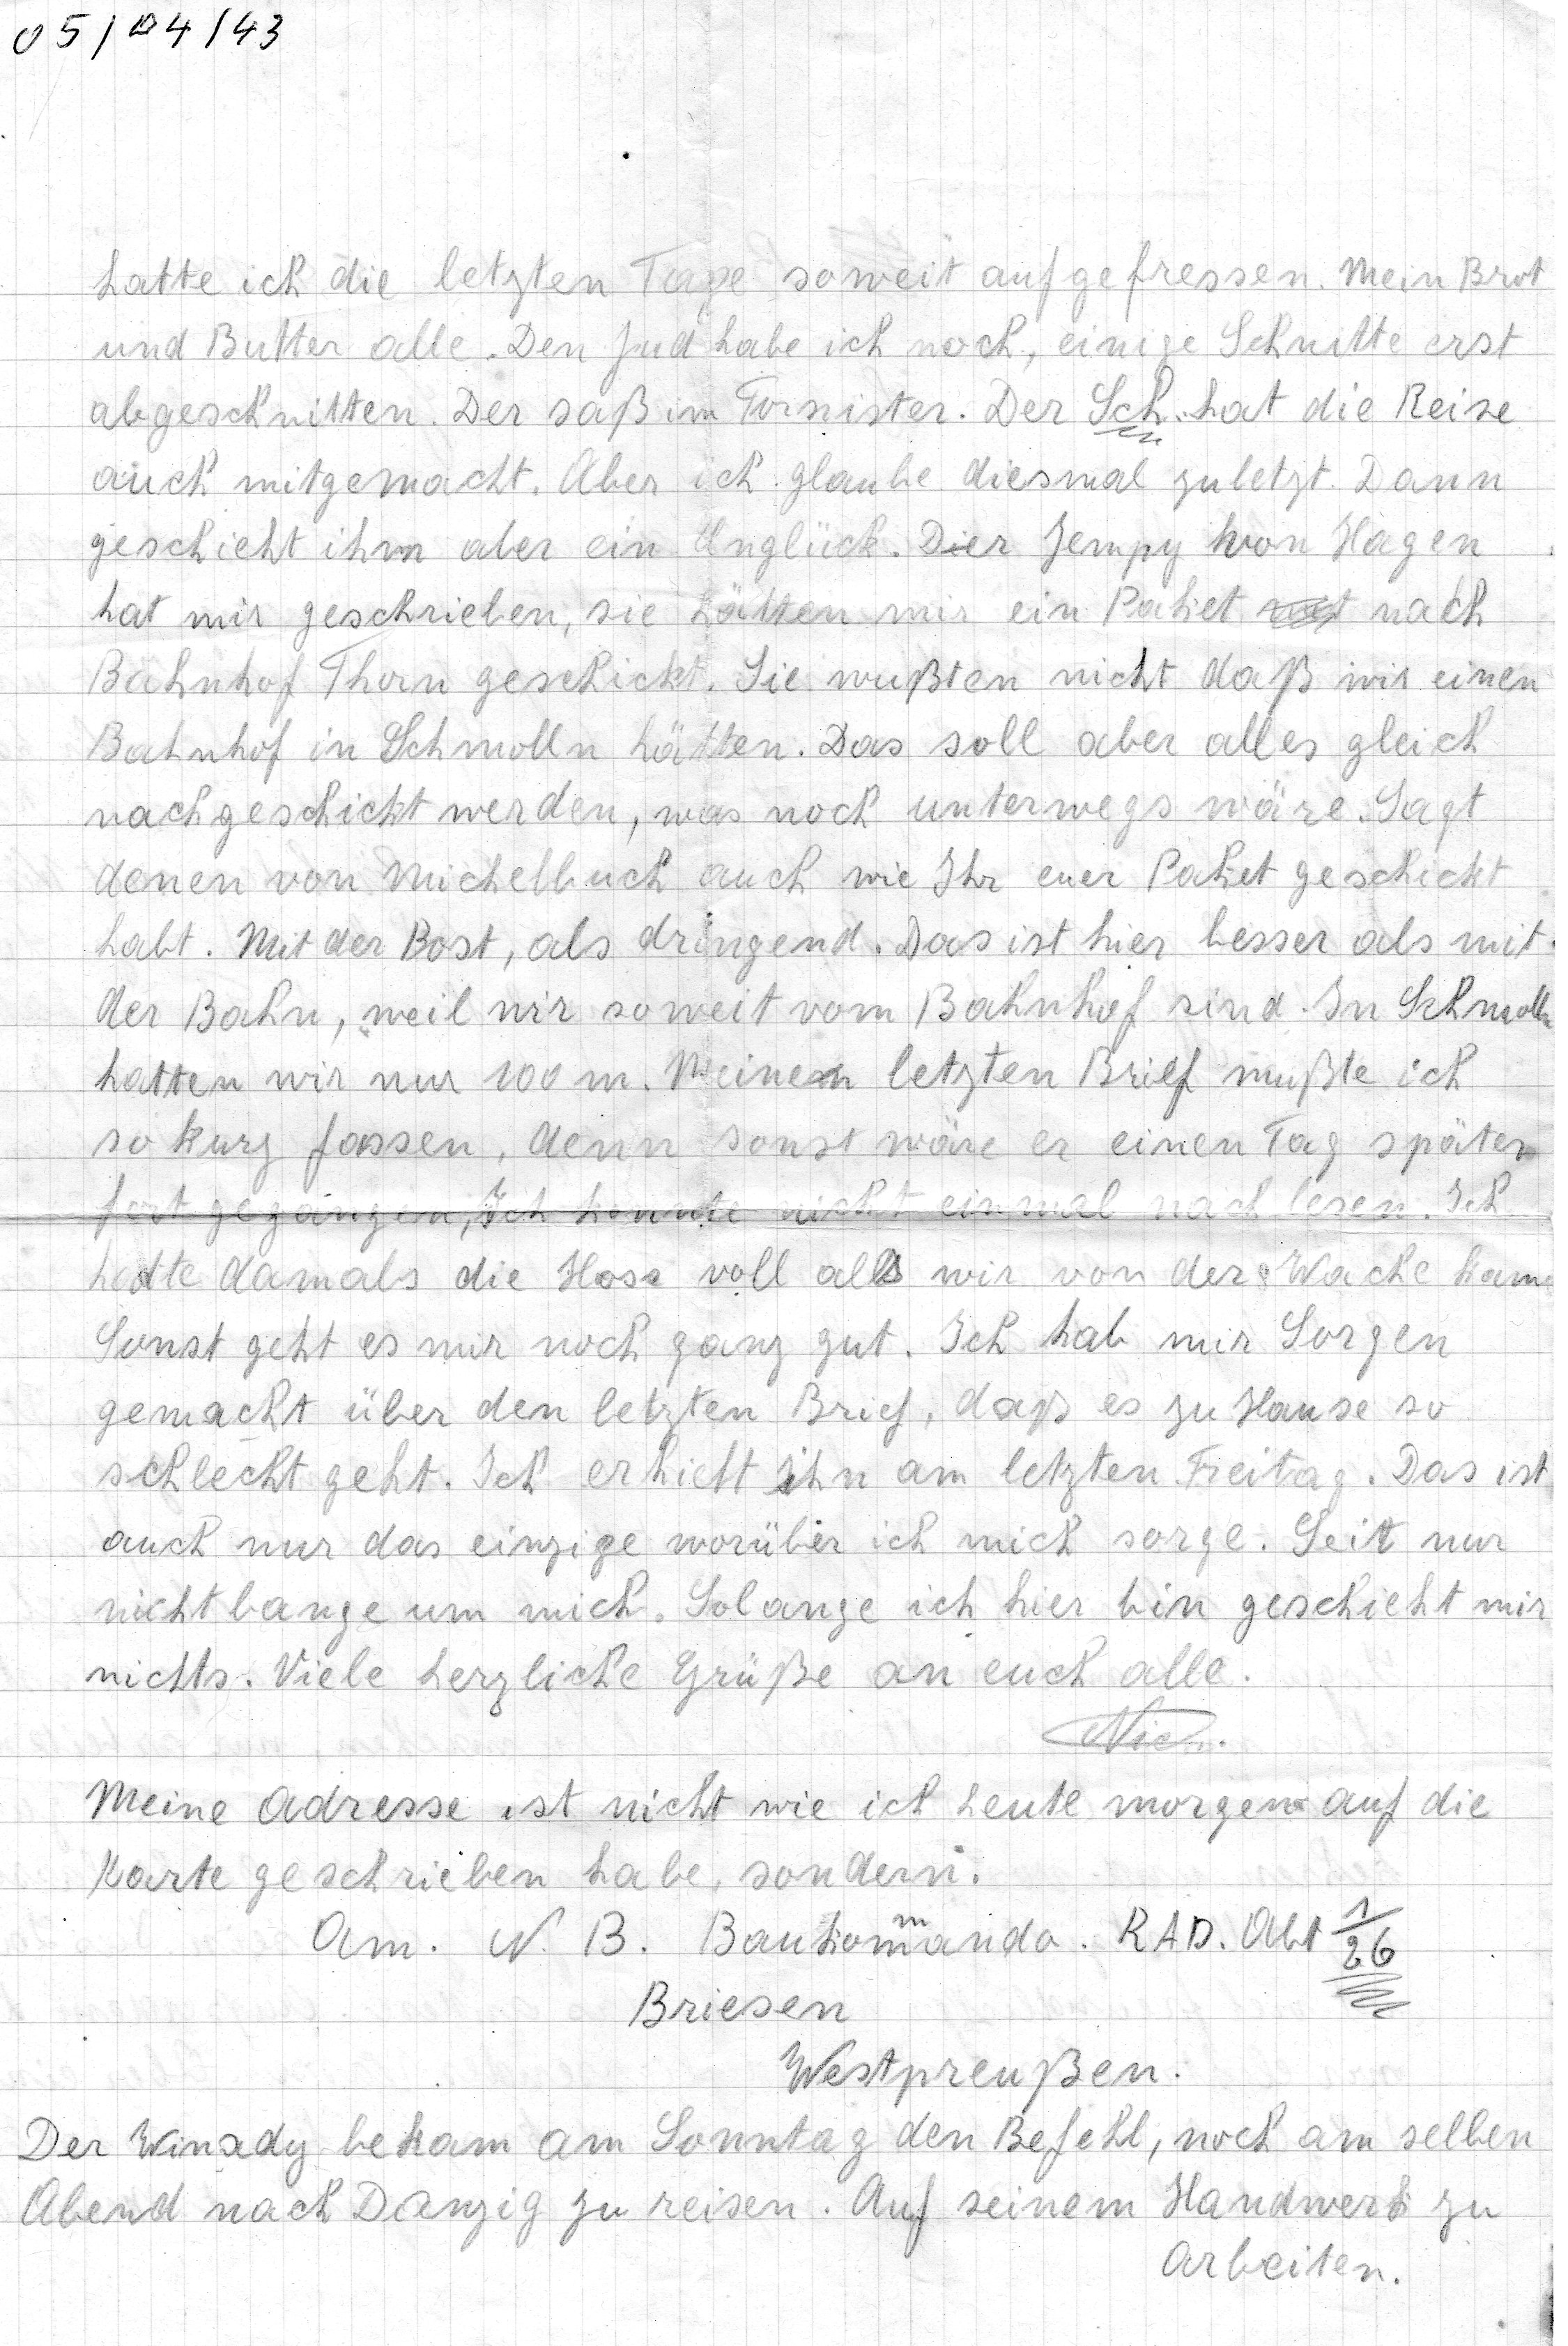 05/04/43
hatte ich die letzten Tage soweit aufgefressen. Mein Brot
und Butter alle. Den Jud habe ich noch, einige Schnitte erst
abgeschnitten. Der saß im Tornister. Der Sch. hat die Reise
auch mitgemacht. Aber ich glaube diesmal zuletzt. Dann
geschieht ihm aber ein Unglück. Dier Jempy von Hagen
hat mir geschrieben, sie hätten mir ein Paket nach
Bahnhof Thorn geschickt. Sie wußten nicht daß wir einen
Bahnhof in Schmolln hätten. Das soll aber alles gleich
nachgeschickt werden, was noch unterwegs wäre. Sagt
denen von Michelbuch auch wie Ihr euer Paket geschickt
habt. Mit der Bost, als dringend. Das ist hier besser als mit
der Bahn, weil wir soweit vom Bahnhof sind. In Schmolln
hatten wir nur 100 m. Meinen letzten Brief mußte ich
so kurz fassen, denn sonst wäre er einen Tag später
fort gegangen, Ich konnte nicht einmal nach lesen. Ich
hatte damals die Hose voll als wir von der Wache kam
Sonst geht es mir noch ganz gut. Ich hab mir Sorgen
gemacht über den letzten Brief, daß es zu Hause so
schlecht geht. Ich erhielt ihn am letzten Freitag. Das ist
auch nur das einzige worüber ich mich sorge. Seit nur
nicht bange um mich. Solange ich hier bin geschieht mir
nichts. Viele herzliche Grüße an euch alle.
Nic.
Meine Adresse ist nicht wie ich heute morgen auf die
Karte geschrieben habe, sondern.
Am. N. B. Baukommando. RAD. Abt 1/26
Briesen
Westpreußen.
Der Winady bekam am Sonntag den Befehl, noch am selben
Abend nach Danzig zu reisen. Auf seinem Handwerk zu
Arbeiten.